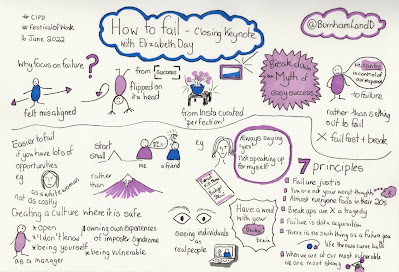 # CIPD
# Festival of Work
16 June 2022
How to fail - Closing Keynote
with Elizabeth Day
@BurnhamLandD
Why focus on failure?
felt misaligned
from success
flipped on
it's head
from Insta curated
'perfection'
Break down
the Myth of
easy success
We can be
in control of our
response
to failure
rather than setting
out to fail
X fail fast + break
Easier to fail
if you have lots of
opportunities
eg
as a white woman
not as costly
start
small
me
a friend
rather
than
eg
Always saying
'yes'
not speaking up
for myself
7 principles
Failure just is
You are not your worst thoughts
Almost everyone fails in their 20s
Break ups are X a tragedy
Failure is data acquisition
There is no such thing as a future you
life throws curve balls
When we are at our most vulnerable
we are most strong
Creating a Culture where it is safe
* Open
* 'I don't know'
* being yourself
as a manager
* owning own experiences
of imposter syndrome
* being vulnerable
seeing individuals
as
real people
Have a word
with your
brain